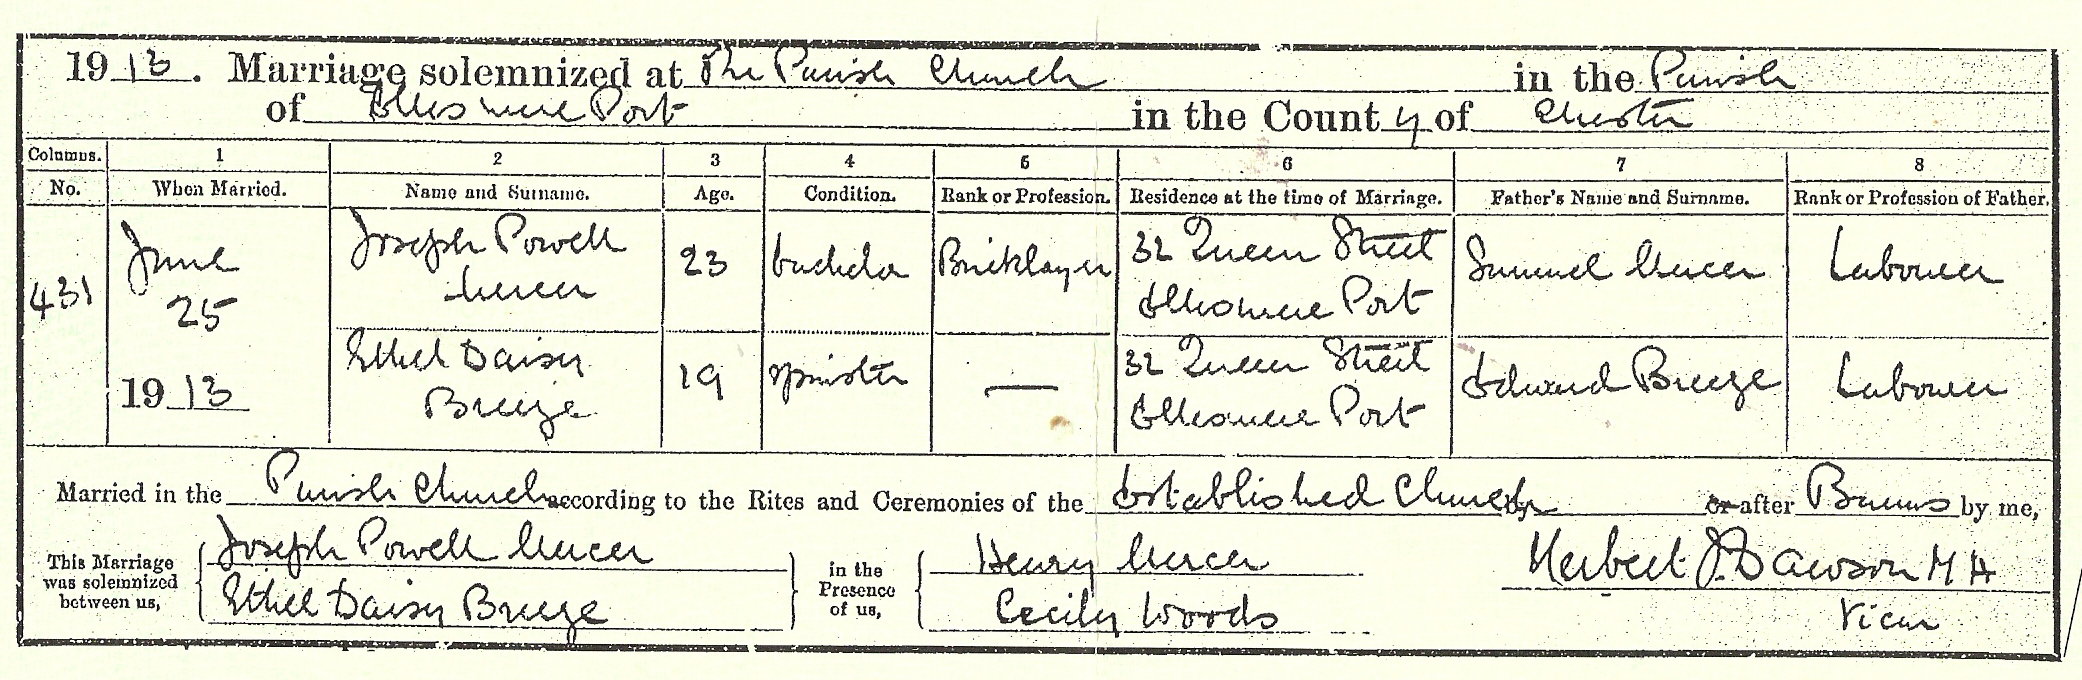 1913. Marriage solemnized at The Parish Church in the Parish
of Ellesmere Port in the County of Chester
Columns. 1 2 3 4 5 6 7 8
No. When Married. Name and Surname. Age. Condition. Rank or Profession. Residence at the time of Marriage. Father's Name and Surname. Rank or Profession of Father.
431 June 25 1913 Joseph Powell Mercer 23 bachelor Bricklayer 32 Queen Street Ellesmere Port Samuel Mercer Labourer
Ethel Daisy Breeze 19 spinster — 32 Queen Street Ellesmere Port Edward Breeze Labourer
Married in the Parish Church according to the Rites and Ceremonies of the Established Church by or after Banns by me,
This Marriage was solemnized between us, Joseph Powell Mercer Ethel Daisy Breeze in the Presence of us, Henry Mercer Cecily Woods Herbert J. Dawson M A
Vicar